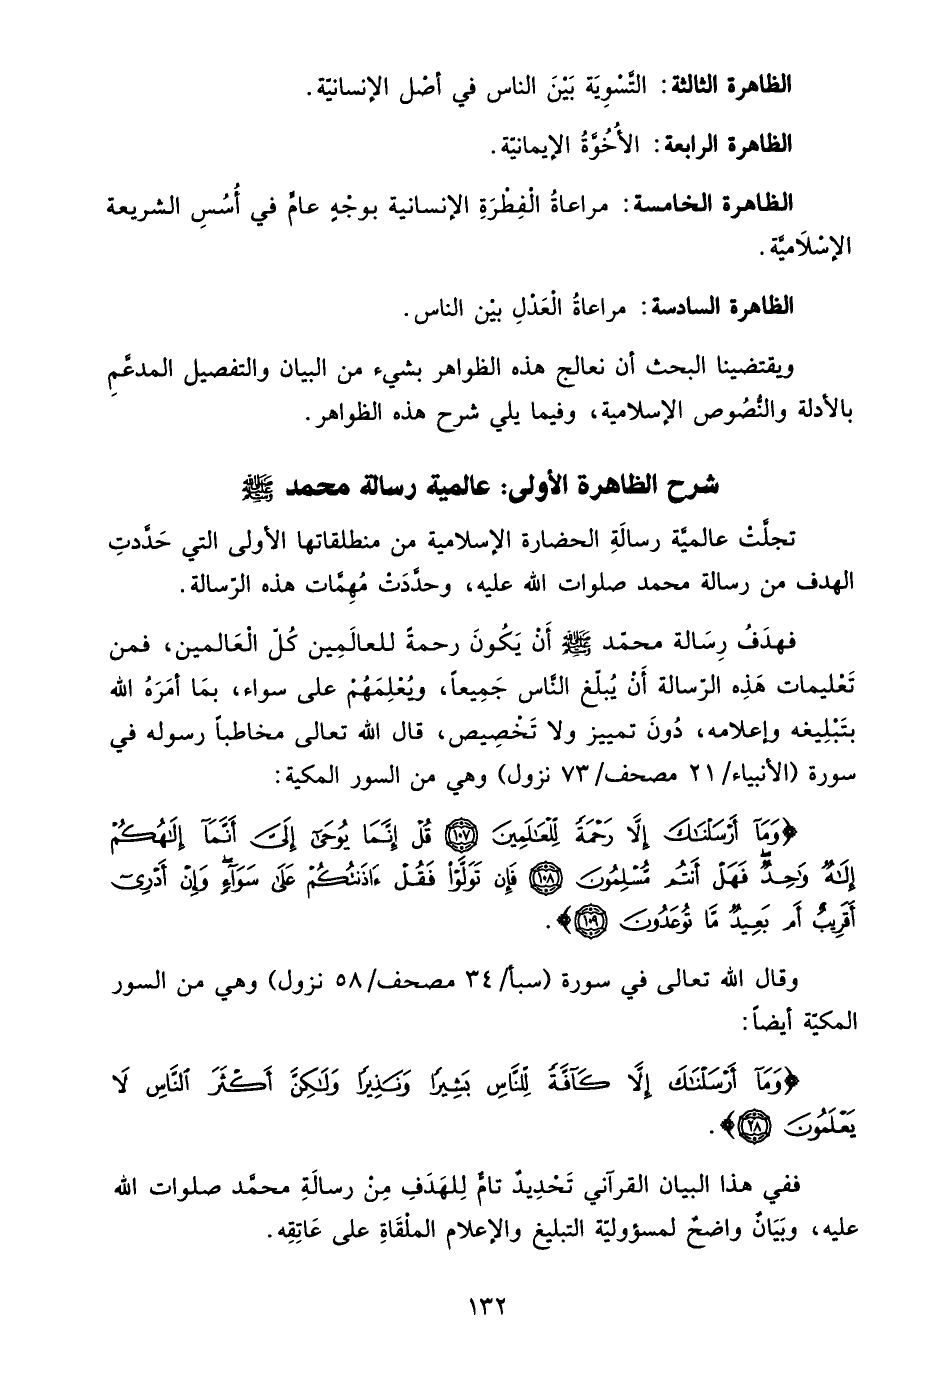 الظاهرة الثالثة: التَّسْوِيَة بَيْنَ الناس في أصْل الإنسانيّة.
الظاهرة الرابعة: الأُخُوَّةُ الإيمانيّة.
الظاهرة الخامسة: مراعاةُ الْفِطْرَةِ الإنسانية بوجْهٍ عامٍّ في أُسُسِ الشريعة
الإسْلَاميَّة.
الظاهرة السادسة: مراعاةُ الْعَدْلِ بيْن الناس.
ويقتضينا البحث أن نعالج هذه الظواهر بشيء من البيان والتفصيل المدعَّمِ
بالأدلة والنُّصُوص الإسلامية، وفيما يلي شرح هذه الظواهر.
شرح الظاهرة الأولى: عالمية رسالة محمد ﷺ
تجلَّتْ عالميَّة رسالَةِ الحضارة الإسلامية من منطلقاتها الأولى التي حَدَّدتِ
الهدف من رسالة محمد صلوات الله عليه، وحدَّدَتْ مُهِمَّات هذه الرّسالة.
فهدَفُ رِسَالة محمّد ﷺ أَنْ يَكُونَ رحمةً للعالَمِين كُلّ الْعَالمين، فمن
تَعْليمات هَذِه الرّسالة أَنْ يُبلّغ النَّاس جَمِيعاً، ويُعْلِمَهُمْ على سواء، بمَا أمَرَهُ الله
بتَبْلِيغه وإعلامه، دُونَ تمييز ولا تَخْصِيص، قال الله تعالى مخاطباً رسوله في
سورة (الأنبياء/ ٢١ مصحف/ ٧٣ نزول) وهي من السور المكية:
﴿وَمَآ أَرْسَلْنَٰكَ إِلَّا رَحْمَةً لِّلْعَٰلَمِينَ ١٠٧ قُلْ إِنَّمَا يُوحَىٰٓ إِلَىَّ أَنَّمَآ إِلَٰهُكُمْ
إِلَٰهٌ وَٰحِدٌۖ فَهَلْ أَنتُم مُّسْلِمُونَ ١٠٨ فَإِن تَوَلَّوْا۟ فَقُلْ ءَاذَنتُكُمْ عَلَىٰ سَوَآءٍۖ وَإِنْ أَدْرِىٓ
أَقَرِيبٌ أَم بَعِيدٌ مَّا تُوعَدُونَ ١٠٩﴾.
وقال الله تعالى في سورة (سبأ/ ٣٤ مصحف/ ٥٨ نزول) وهي من السور
المكيّة أيضاً:
﴿وَمَآ أَرْسَلْنَٰكَ إِلَّا كَآفَّةً لِّلنَّاسِ بَشِيرًا وَنَذِيرًا وَلَٰكِنَّ أَكْثَرَ ٱلنَّاسِ لَا
يَعْلَمُونَ ٢٨﴾.
ففي هذا البيان القرآني تَحْدِيدٌ تامٌّ لِلهَدَفِ مِنْ رسالَةِ محمَّد صلوات الله
عليه، وبَيَانٌ واضحٌ لمسؤوليّة التبليغ والإعلام الملْقَاةِ على عَاتِقِه.
١٣٢